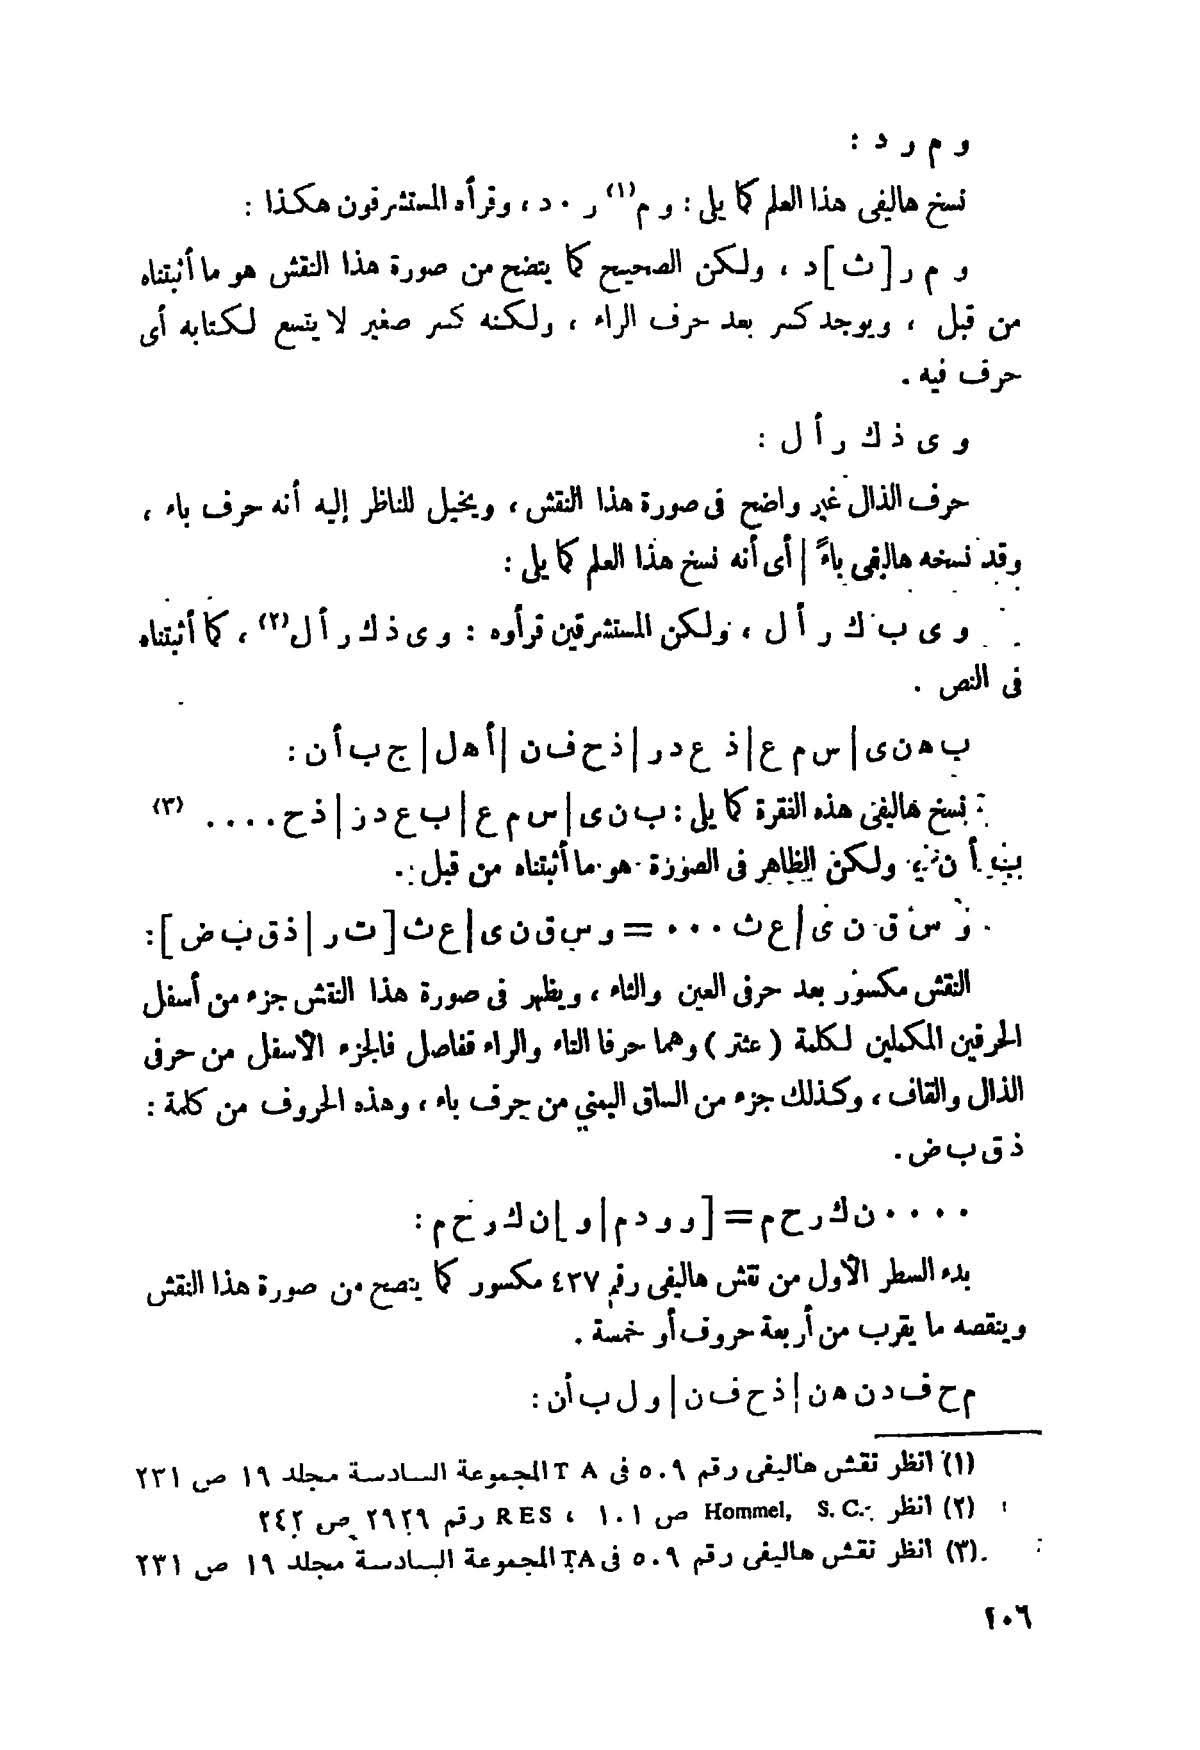 و م ر د :
نسخ هاليفى هذا العلم كما يلى : و م(١) ر ٠ د ، وقرأه المستشرقون هكذا :
و م ر [ ث ] د ، ولكن الصحيح كما يتضح من صورة هذا النقش هو ما أثبتناه
من قبل ، ويوجد كسر بعد حرف الراء ، ولكنه كسر صغير لا يتسع لكتابه أى
حرف فيه .
و ى ذ ك ر أ ل :
حرف الذال غير واضح فى صورة هذا النقش ، ويخيل للناظر إليه أنه حرف باء ،
وقد نسخه هاليفى باءً | أى أنه نسخ هذا العلم كما يلى :
و ى ب ك ر أ ل ، ولكن المستشرقين قرأوه : و ى ذ ك ر أ ل(٢) ، كما أثبتناه
فى النص .
ب ه ن ى | س م ع | ذ ع د ر | ذ ح ف ن | أ ه ل | ج ب أ ن :
نسخ هاليفى هذه النقرة كما يلى : ب ن ى | س م ع | ب ع د ز | ذ ح .... (٣)
أ ن ، ولكن الظاهر فى الصورة هو ما أثبتناه من قبل .
و س ق ن ى | ع ث ٠٠٠ = و س ق ن ى | ع ث [ ت ر | ذ ق ب ض ] :
النقش مكسور بعد حرفى العين والثاء ، ويظهر فى صورة هذا النقش جزء من أسفل
الحرفين المكملين لكلمة ( عثتر ) وهما حرفا التاء والراء ففاصل فالجزء الأسفل من حرفى
الذال والقاف ، وكذلك جزء من الساق اليمني من حرف باء ، وهذه الحروف من كلمة :
ذ ق ب ض .
٠٠٠٠ ن ك ر ح م = [ و و د م | و ] ن ك ر ح م :
بدء السطر الأول من نقش هاليفى رقم ٤٣٧ مكسور كما يتصح من صورة هذا النقش
وينقصه ما يقرب من أربعة حروف أو خمسة .
م ح ف د ن ه ن | ذ ح ف ن | و ل ب أ ن :
(١) انظر نقش هاليفى رقم ٥٠٩ فى T A المجموعة السادسة مجلد ١٩ ص ٢٣١
(٢) انظر Hommel, S. C. ص ١٠١ ، RES رقم ٢٩٢٩ ص ٢٤٢
(٣) انظر نقش هاليفى رقم ٥٠٩ فى TA المجموعة السادسة مجلد ١٩ ص ٢٣١
٢٠٦